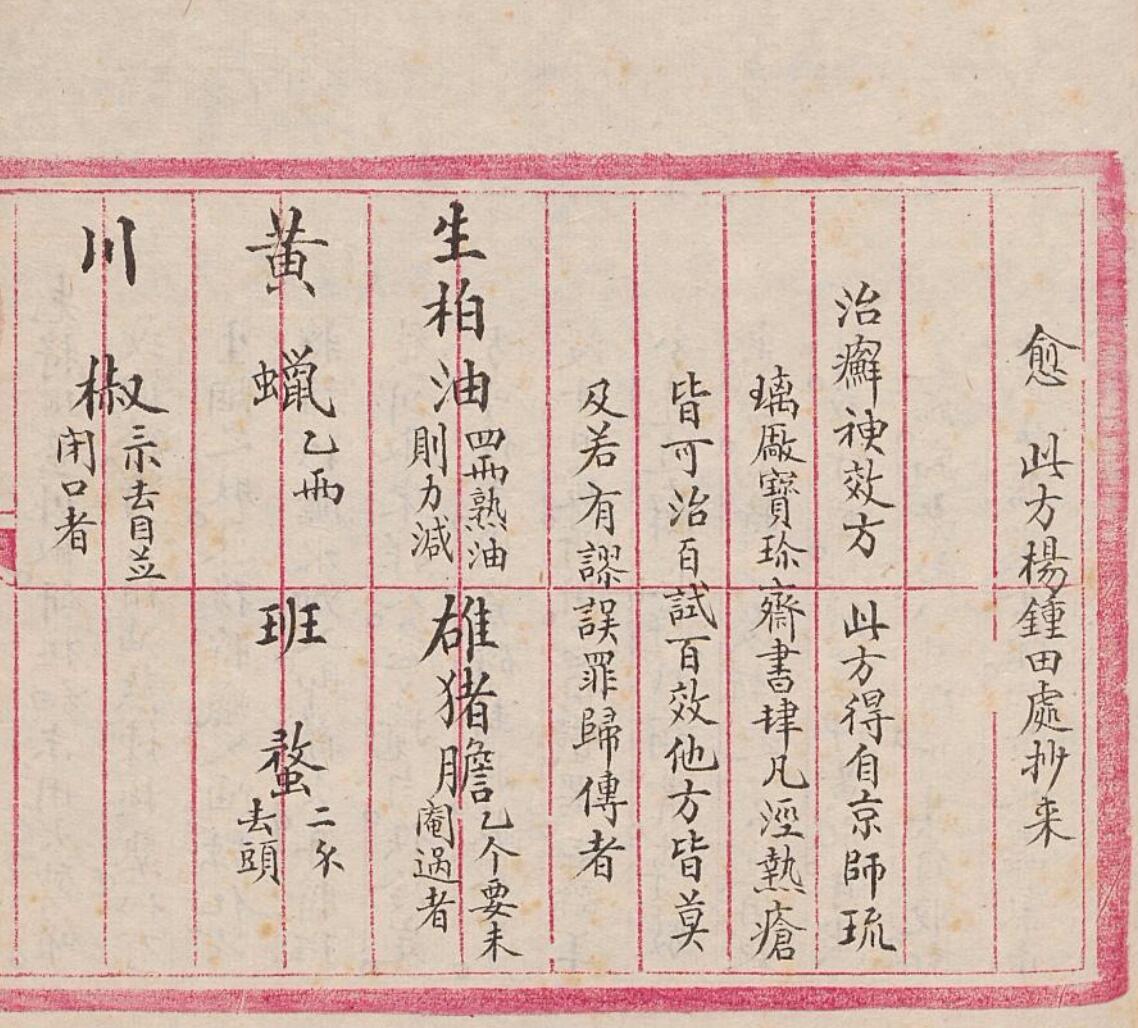 愈 此方楊鍾田處抄来
治癬神效方 此方得自京師琉
璃厰寶珍齋書肆凡溼熱瘡
皆可治百試百效他方皆莫
及若有謬誤罪歸傳者
生柏油 四兩熟油
則力減
雄猪膽 乙个要未
閹過者
黃蠟 乙兩
班蝥 二
去頭
川椒 三 去目並
閉口者